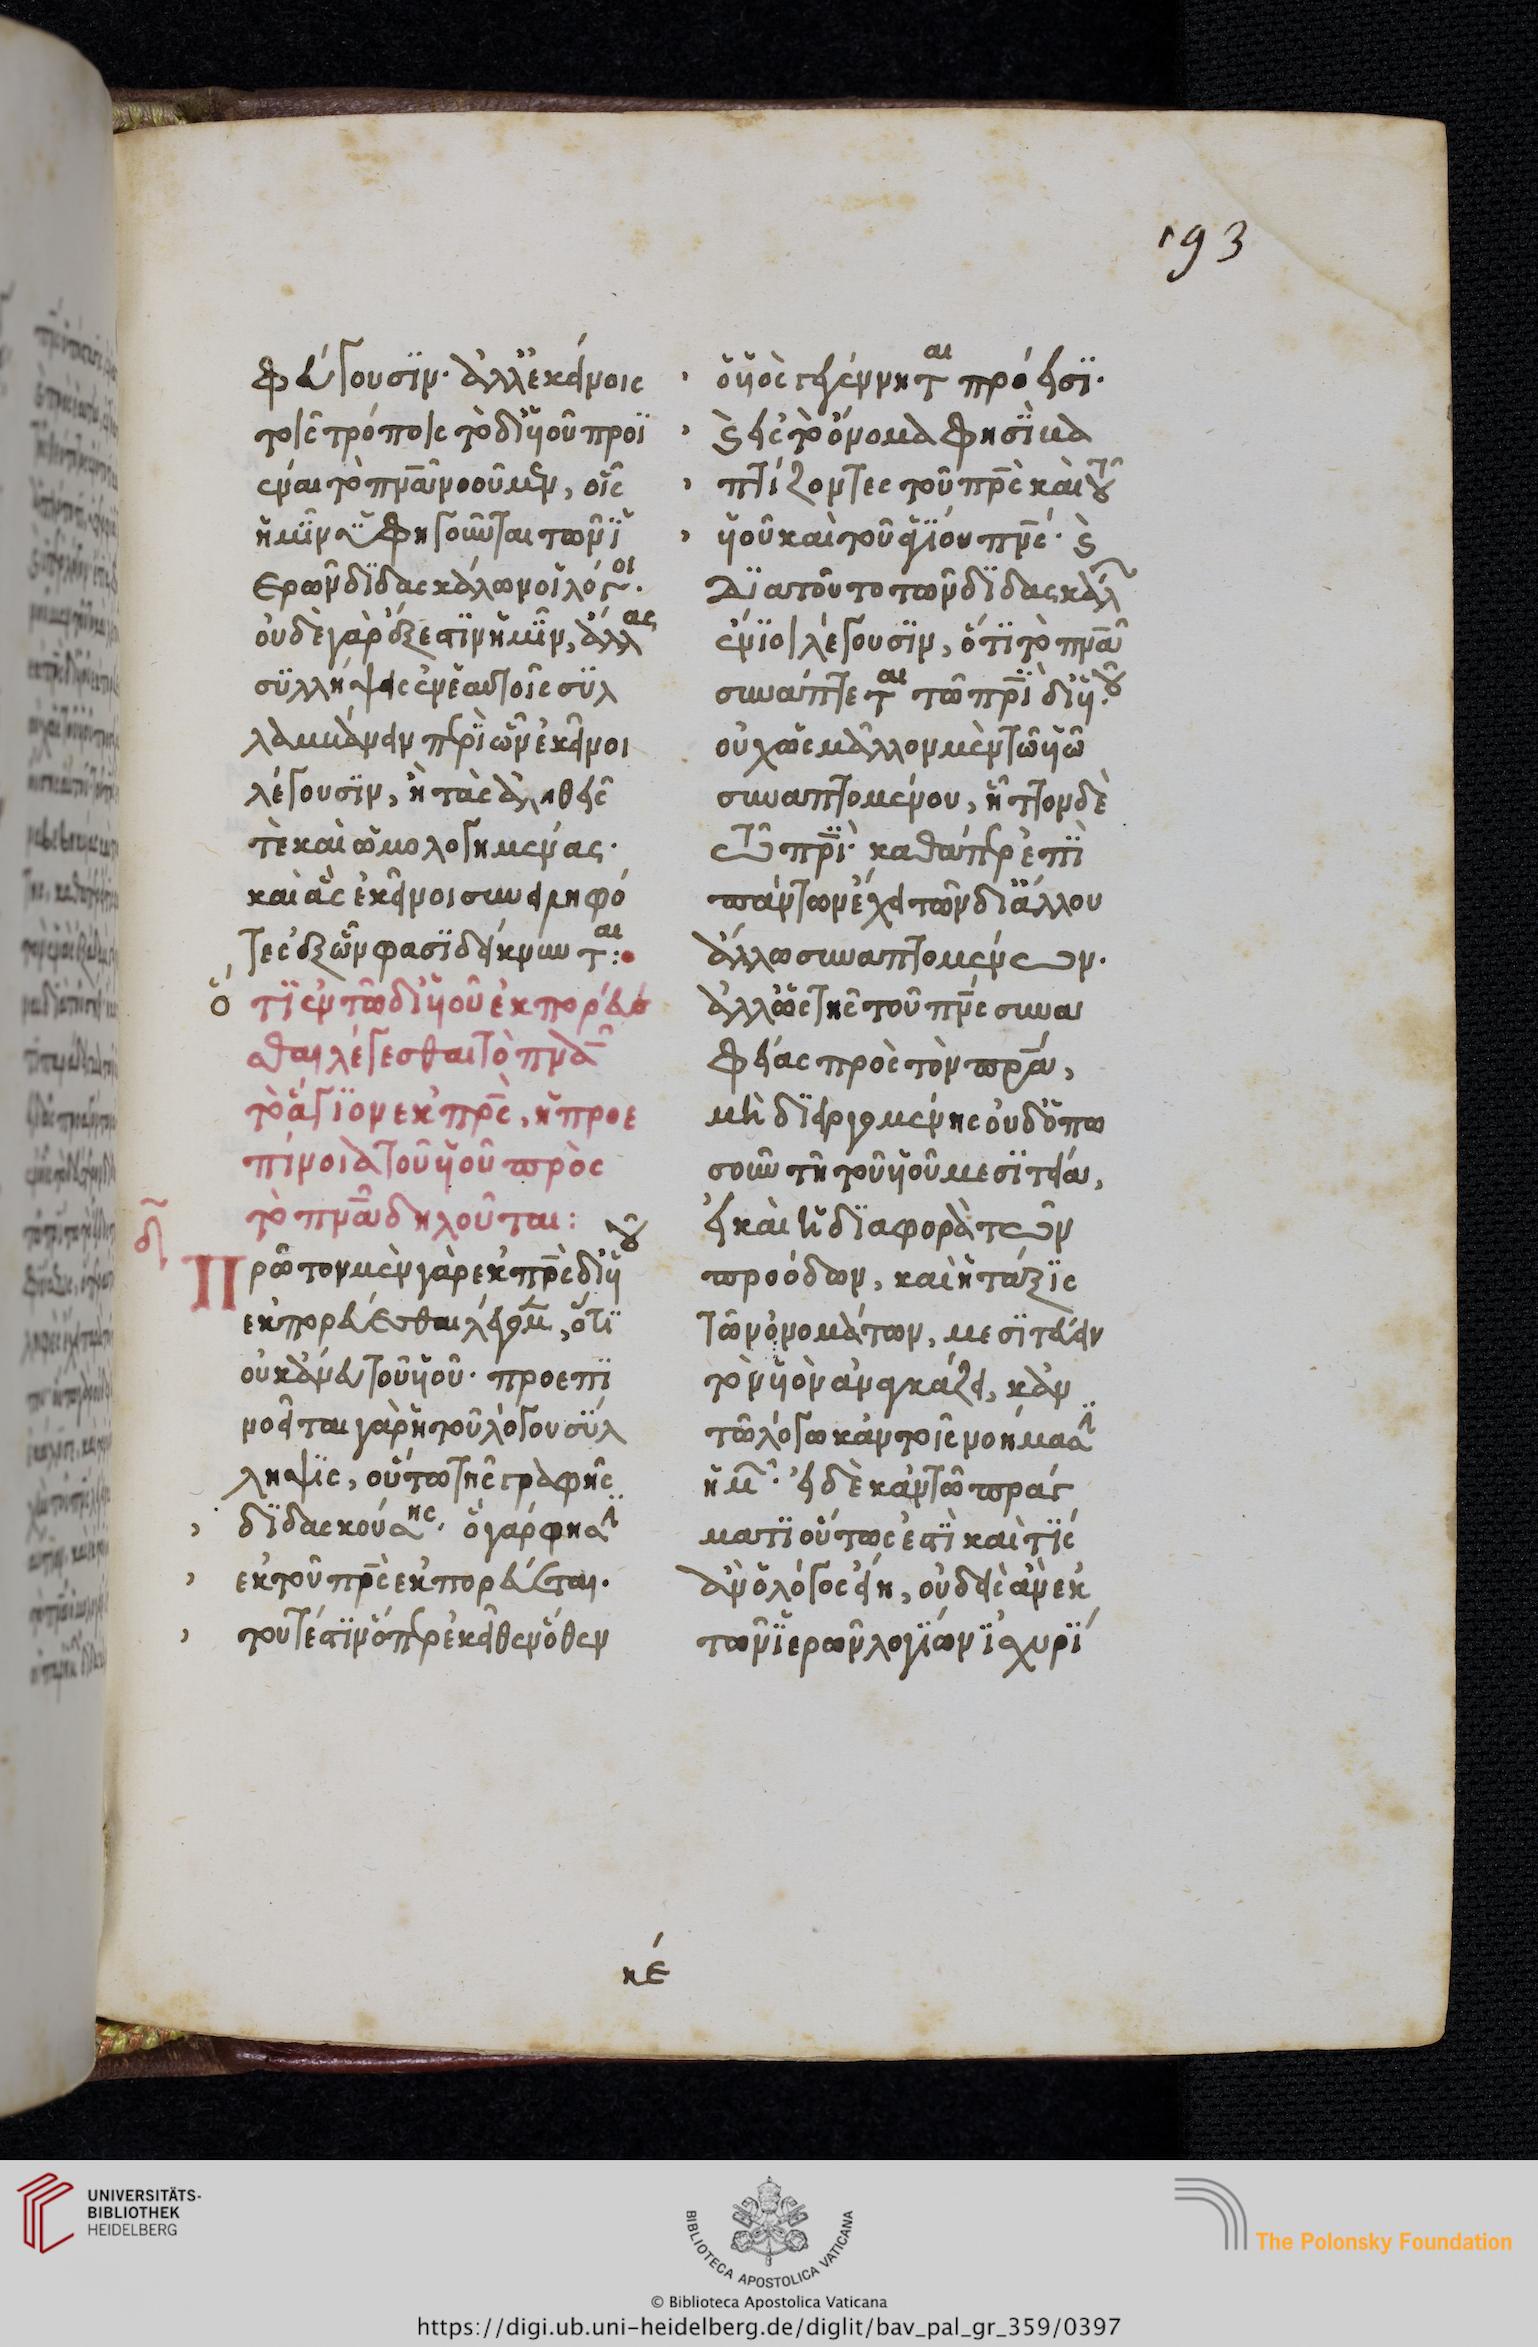 193
φεύγουσιν· ἀλλ' ἐκείνοις
τοῖς τρόποις τὸ δι' υἱοῦ προϊ
έναι τὸ πνᾶ νοοῦμεν, οἷς
ἡμῖν ὑφηγοῦνται τῶν ἱ
ερῶν διδασκάλων οἱ λόγοι.
οὐδὲ γὰρ ἔξεστιν ἡμῖν, ἄλλας
συλλήψεις ἐν ἑαυτοῖς συλ
λαμβάνειν περὶ ὧν ἐκεῖνοι
λέγουσιν, ἢ τὰς ἀληθεῖς
τε καὶ ὡμολογημένας·
καὶ ἃς ἐκεῖνοι συνειληφό
τες ἐξ ὧν φασι δείκνυνται:
ὅτι ἐν τῷ δι' υἱοῦ ἐκπορεύε
σθαι λέγεσθαι τὸ πνᾶ
τὸ ἅγιον ἐκ πρς, ἡ προε
πίνοια τοῦ υἱοῦ πρὸς
τὸ πνᾶ δηλοῦται:
Πρῶτον μὲν γὰρ ἐκ πρς δι' υἱοῦ
ἐκπορεύεσθαι λέγομεν, ὅτι
οὐκ ἄνευ τοῦ υἱοῦ· προεπι
νοεῖται γὰρ ἡ τοῦ λόγου σύλ
ληψις, οὕτω τῆς γραφῆς
διδασκούσης. ὃ γάρ φησι
ἐκ τοῦ πρς ἐκπορεύεται.
τουτέστιν ὅπερ ἐκεῖθεν ὅθεν
ὁ υἱὸς γεγέννηται πρόεισι.
καὶ εἰς τὸ ὄνομα φησὶ βα
πτίζοντες τοῦ πρς καὶ τοῦ
υἱοῦ καὶ τοῦ ἁγίου πνς. καὶ
διατοῦτο τῶν διδασκάλων
ἔνιοι λέγουσιν, ὅτι τὸ πνᾶ
συνάπτεται τῷ πρι δι' υἱοῦ.
οὐχ ὡς μᾶλλον μὲν τῷ υἱῷ
συναπτομένου, ἧττον δὲ
τῷ πρι· καθάπερ ἐπὶ
πάντων ἔχει τῶν δι' ἄλλου
ἄλλω συναπτομένων.
ἀλλ' ὡς τῆς τοῦ πνς συνα
φείας πρὸς τὸν πρα,
μὴ διειργομένης οὐδ' ὅπω
σοῦν τῇ τοῦ υἱοῦ μεσιτεία,
εἰ καὶ ἡ διαφορὰ τῶν
προόδων, καὶ ἡ τάξις
τῶν ὀνομάτων, μεσιτεύειν
τὸν υἱὸν ἀναγκάζει, κἀν
τῷ λόγω κἀν τοῖς νοήμασι
ἡμῶν. εἰ δὲ κἀν τῷ πράγ
ματι οὕτως ἐστὶ καὶ τίς
ἂν ὁ λόγος εἴη, οὐδεὶς ἂν ἐκ
τῶν ἱερῶν λογίων ἰσχυρί
κέ
UNIVERSITÄTS-
BIBLIOTHEK
HEIDELBERG
BIBLIOTECA APOSTOLICA VATICANA
The Polonsky Foundation
© Biblioteca Apostolica Vaticana
https://digi.ub.uni-heidelberg.de/diglit/bav_pal_gr_359/0397